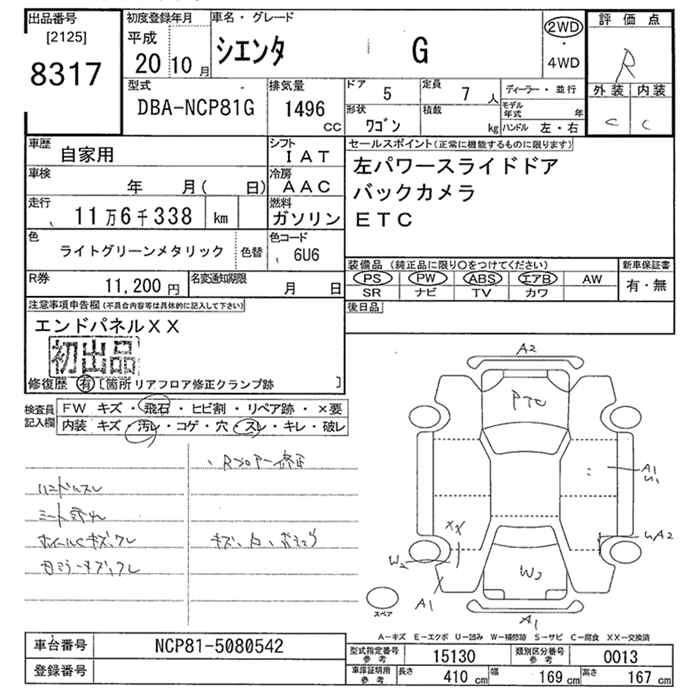 出品番号
[2125]
8317
初度登録年月
平成
20 10 月
車名・グレード
シエンタ G
2WD
・
4WD
評価点
R
外装 内装
C C
型式
DBA-NCP81G
排気量
1496
CC
ドア 5
定員 7 人
形状 ワゴン
積載 kg
ディーラー・並行
モデル年式 年
ハンドル 左・右
車歴
自家用
シフト
IAT
車検
年 月( 日)
冷房
AAC
走行
11万6千338 km
燃料
ガソリン
色
ライトグリーンメタリック
色替
色コード
6U6
R券
11,200 円
名変通知期限
月 日
セールスポイント(正常に機能するものに限ります)
左パワースライドドア
バックカメラ
ETC
装備品 (純正品に限り○をつけてください)
PS PW ABS エアB AW
SR ナビ TV カワ
新車保証書
有・無
後日品
注意事項申告欄(不具合内容等は具体的に記入して下さい)
エンドパネルXX
初出品
修復歴 有 [箇所 リアフロア修正クランプ跡 ]
検査員
記入欄
FW キズ・飛石・ヒビ割・リペア跡・×要
内装 キズ・汚レ・コゲ・穴・スレ・キレ・破レ
Rフロアー修正
ハンドルスレ
A2
PTC
A1
U1
XX
W2
UA2
W2
A1
A1
スペア
A―キズ E―エクボ U―凹み W―補修跡 S―サビ C―腐食 XX―交換済
車台番号
NCP81-5080542
登録番号
型式指定番号
参考
15130
類別区分番号
参考
0013
車庫証明用
参考
長さ 410 cm
幅 169 cm
高さ 167 cm